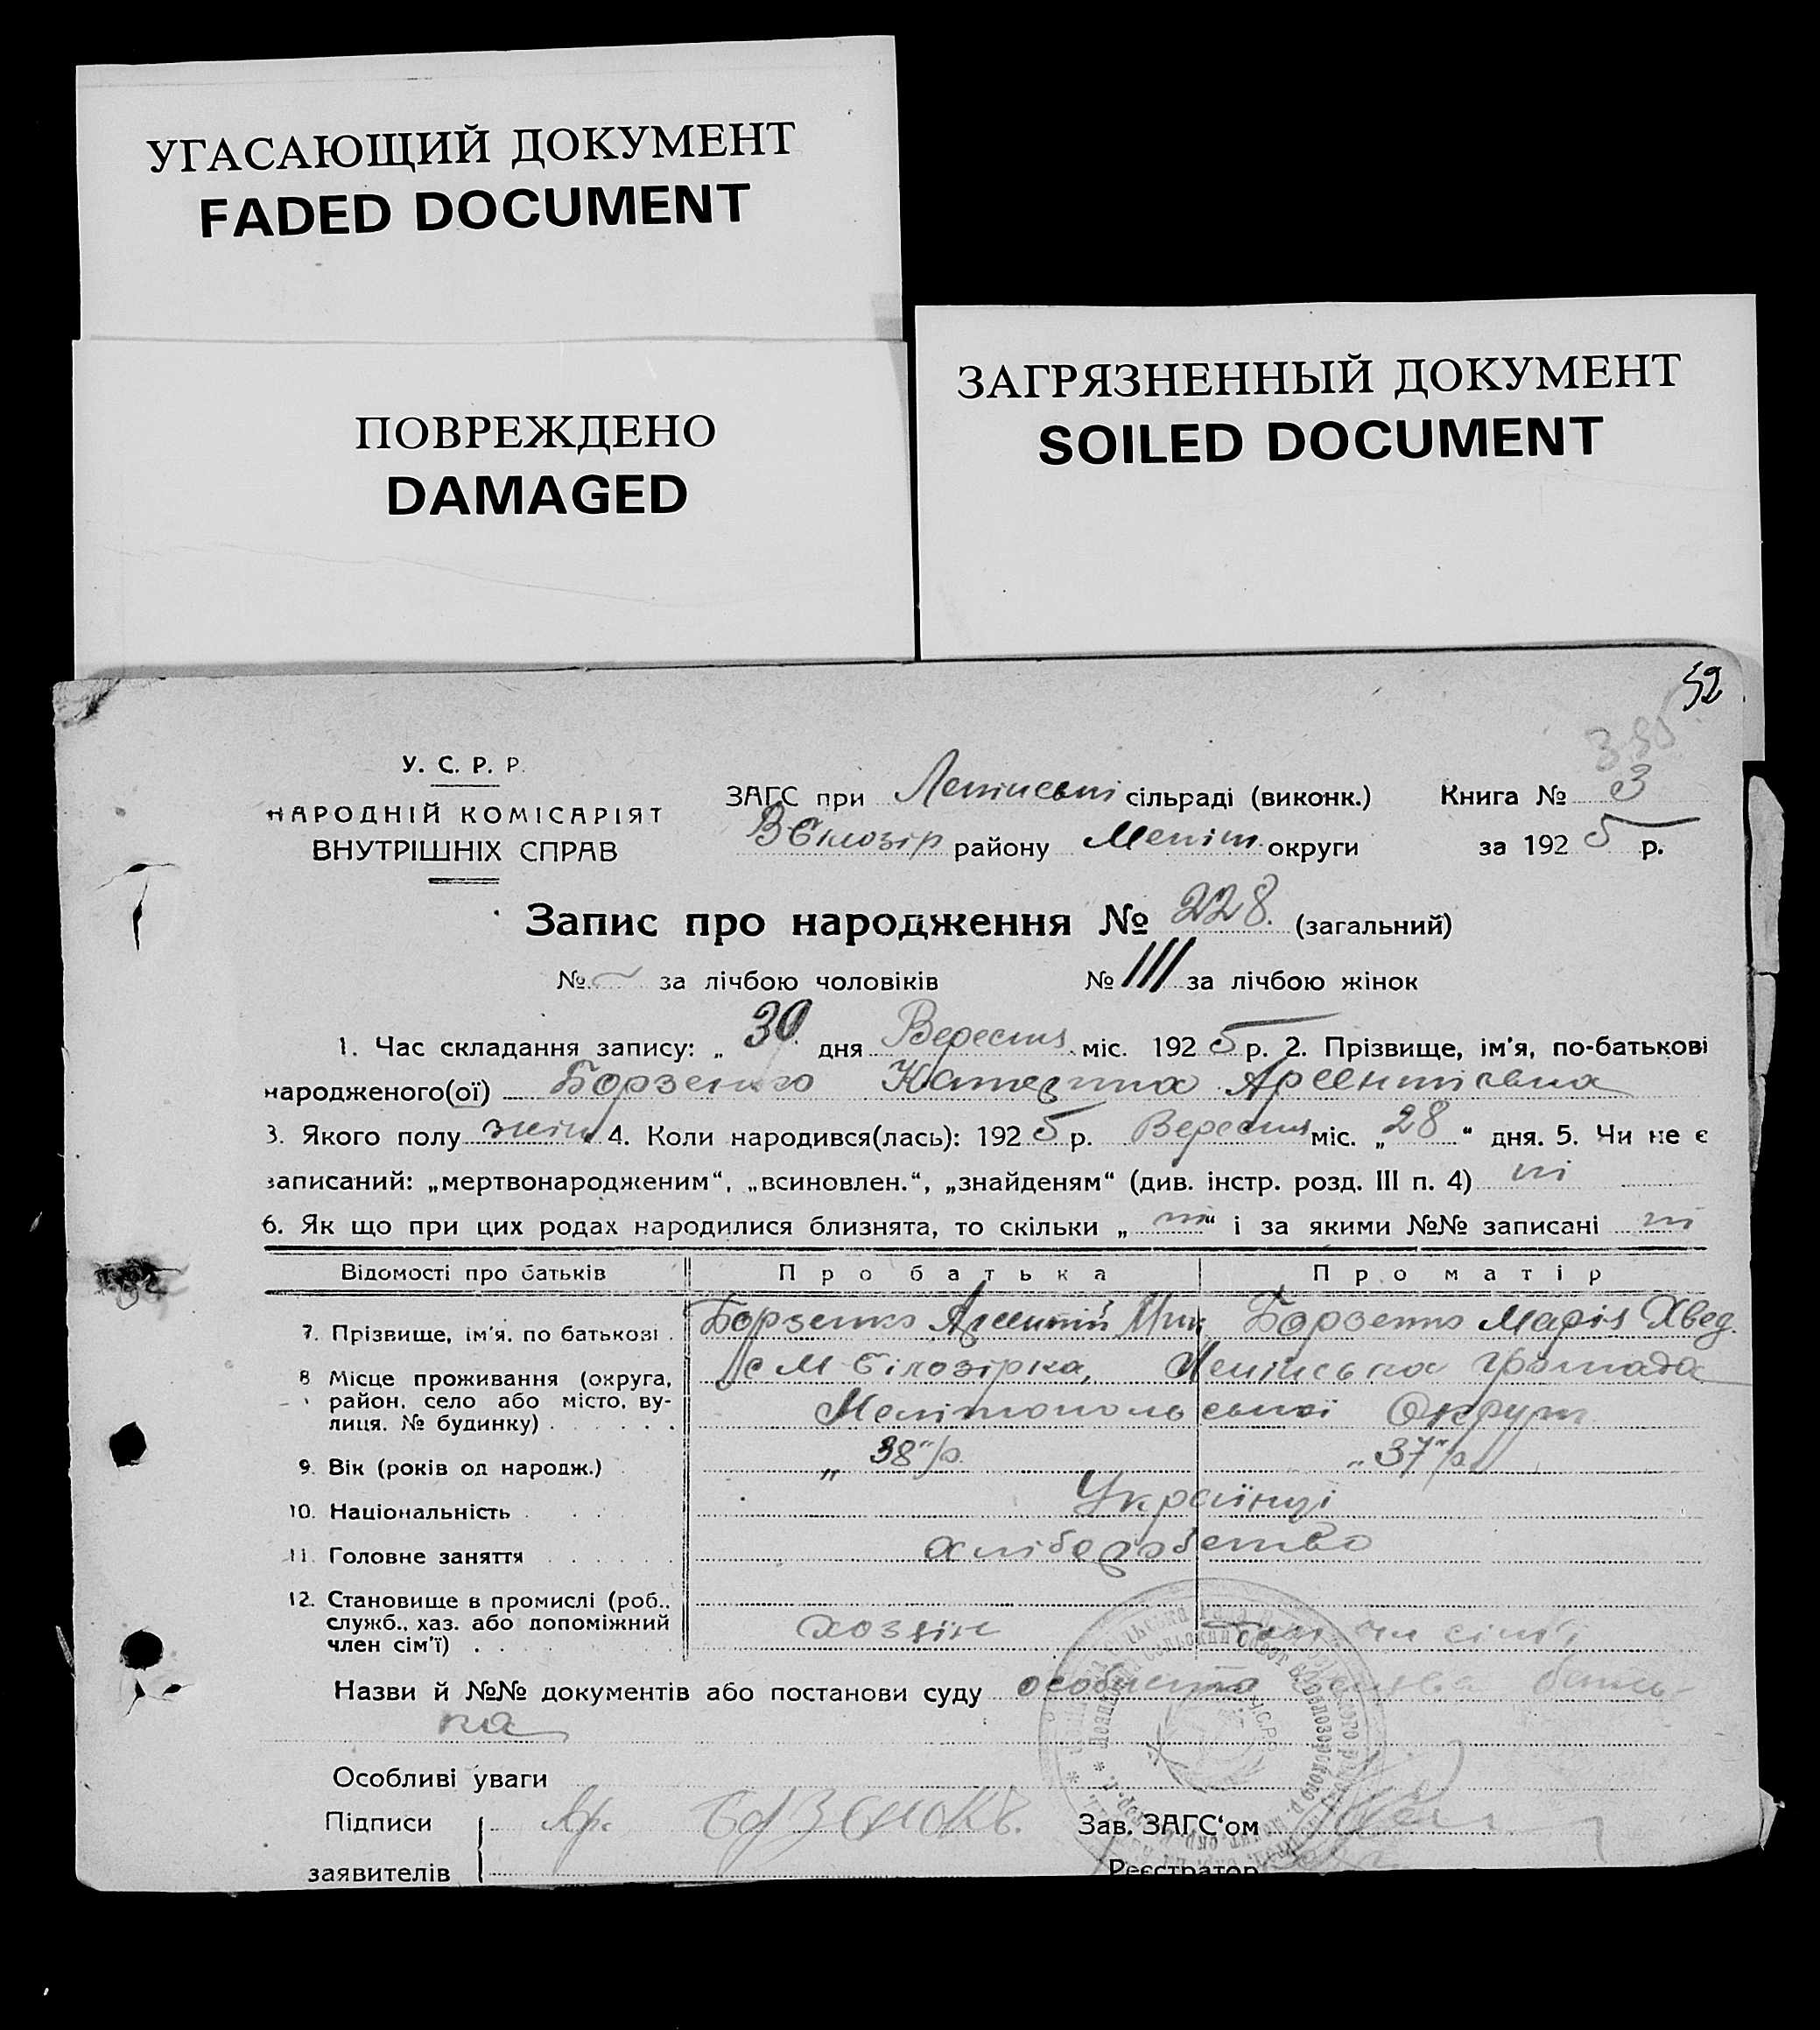 УГАСАЮЩИЙ ДОКУМЕНТ
FADED DOCUMENT
ПОВРЕЖДЕНО
DAMAGED
ЗАГРЯЗНЕННЫЙ ДОКУМЕНТ
SOILED DOCUMENT
52
У. С. Р. Р.
НАРОДНІЙ КОМІСАРІЯТ
ВНУТРІШНІХ СПРАВ
ЗАГС при Ленінські сільраді (виконк.) Книга № 3
В Білозір району Меліт. округи за 1925 р.
Запис про народження № 228. (загальний)
№ – за лічбою чоловіків № 111 за лічбою жінок
1. Час складання запису: „ 30 дня Вересня міс. 1925 р. 2. Прізвище, ім'я, по-батькові
народженого(ої) Борзенко Катерина Арсентіевна
3. Якого полу жін. 4. Коли народився(лась): 1925 р. Вересня міс. „28“ дня. 5. Чи не є
записаний: „мертвонародженим“, „всиновлен.“, „знайденям“ (див. інстр. розд. III п. 4) ні
6. Як що при цих родах народилися близнята, то скільки „ ні “ і за якими №№ записані ні
Відомості про батьків Про батька Про матір
7. Прізвище, ім'я, по батькові . Борзенко Арсентій Мик Борзенко Марія Хвед.
8 Місце проживання (округа, с М Білозірка, Ленінська громада
район, село або місто, ву- Мелітопольської Округи
лиця, № будинку)
9. Вік (років од народж.) „ 38" р. „ 37" р.
10. Національність Українці
11. Головне заняття хліборобство
12. Становище в промислі (роб.,
служб., хаз. або допоміжний хозяїн чл сім'ї
член сім'ї)
Назви й №№ документів або постанови суду особиста заява бать-
ка
Особливі уваги
Підписи Ар. Борзенок. Зав. ЗАГС'ом
заявителів Реєстратор